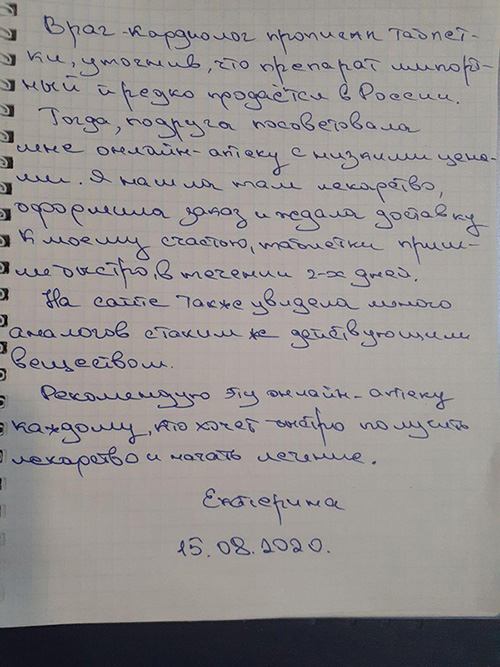 Врач-кардиолог прописал таблет-
ки, уточнив, что препарат импорт-
ный и редко продаётся в России.
Тогда, подруга посоветовала
мне онлайн-аптеку с низкими цена-
ми. Я нашла там лекарство,
оформила заказ и ждала доставку
К моему счастью, таблетки приш-
ли быстро, в течении 2-х дней.
На сайте также увидела много
аналогов с таким же действующим
веществом.
Рекомендую эту онлайн-аптеку
каждому, кто хочет быстро получить
лекарство и начать лечение.
Екатерина
15.08.2020.